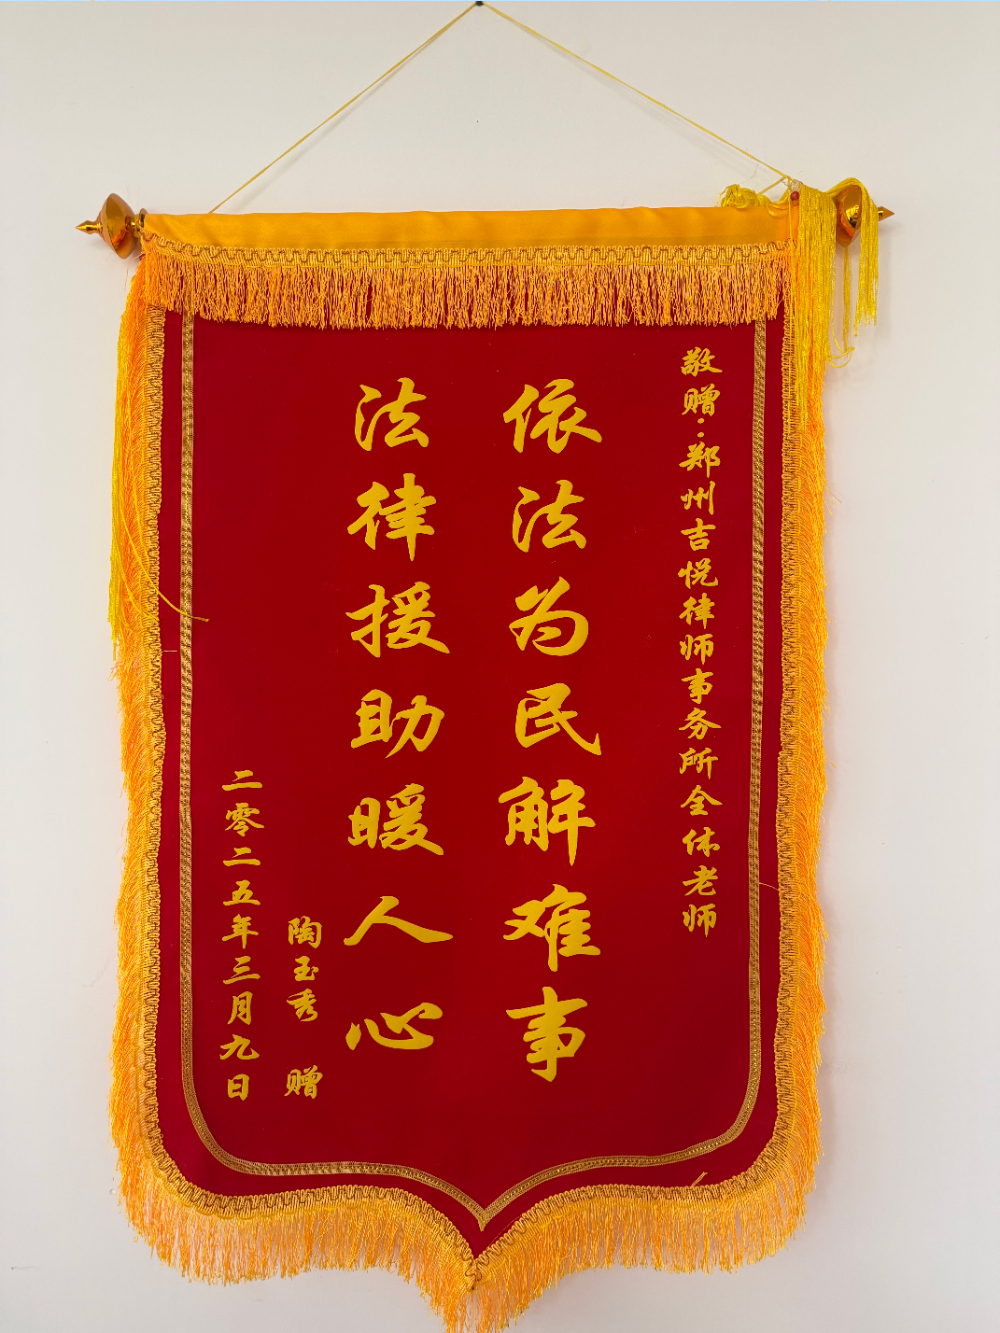 敬赠：郑州吉悦律师事务所全体老师
依法为民解难事
法律援助暖人心
陶玉秀 赠
二零二五年三月九日